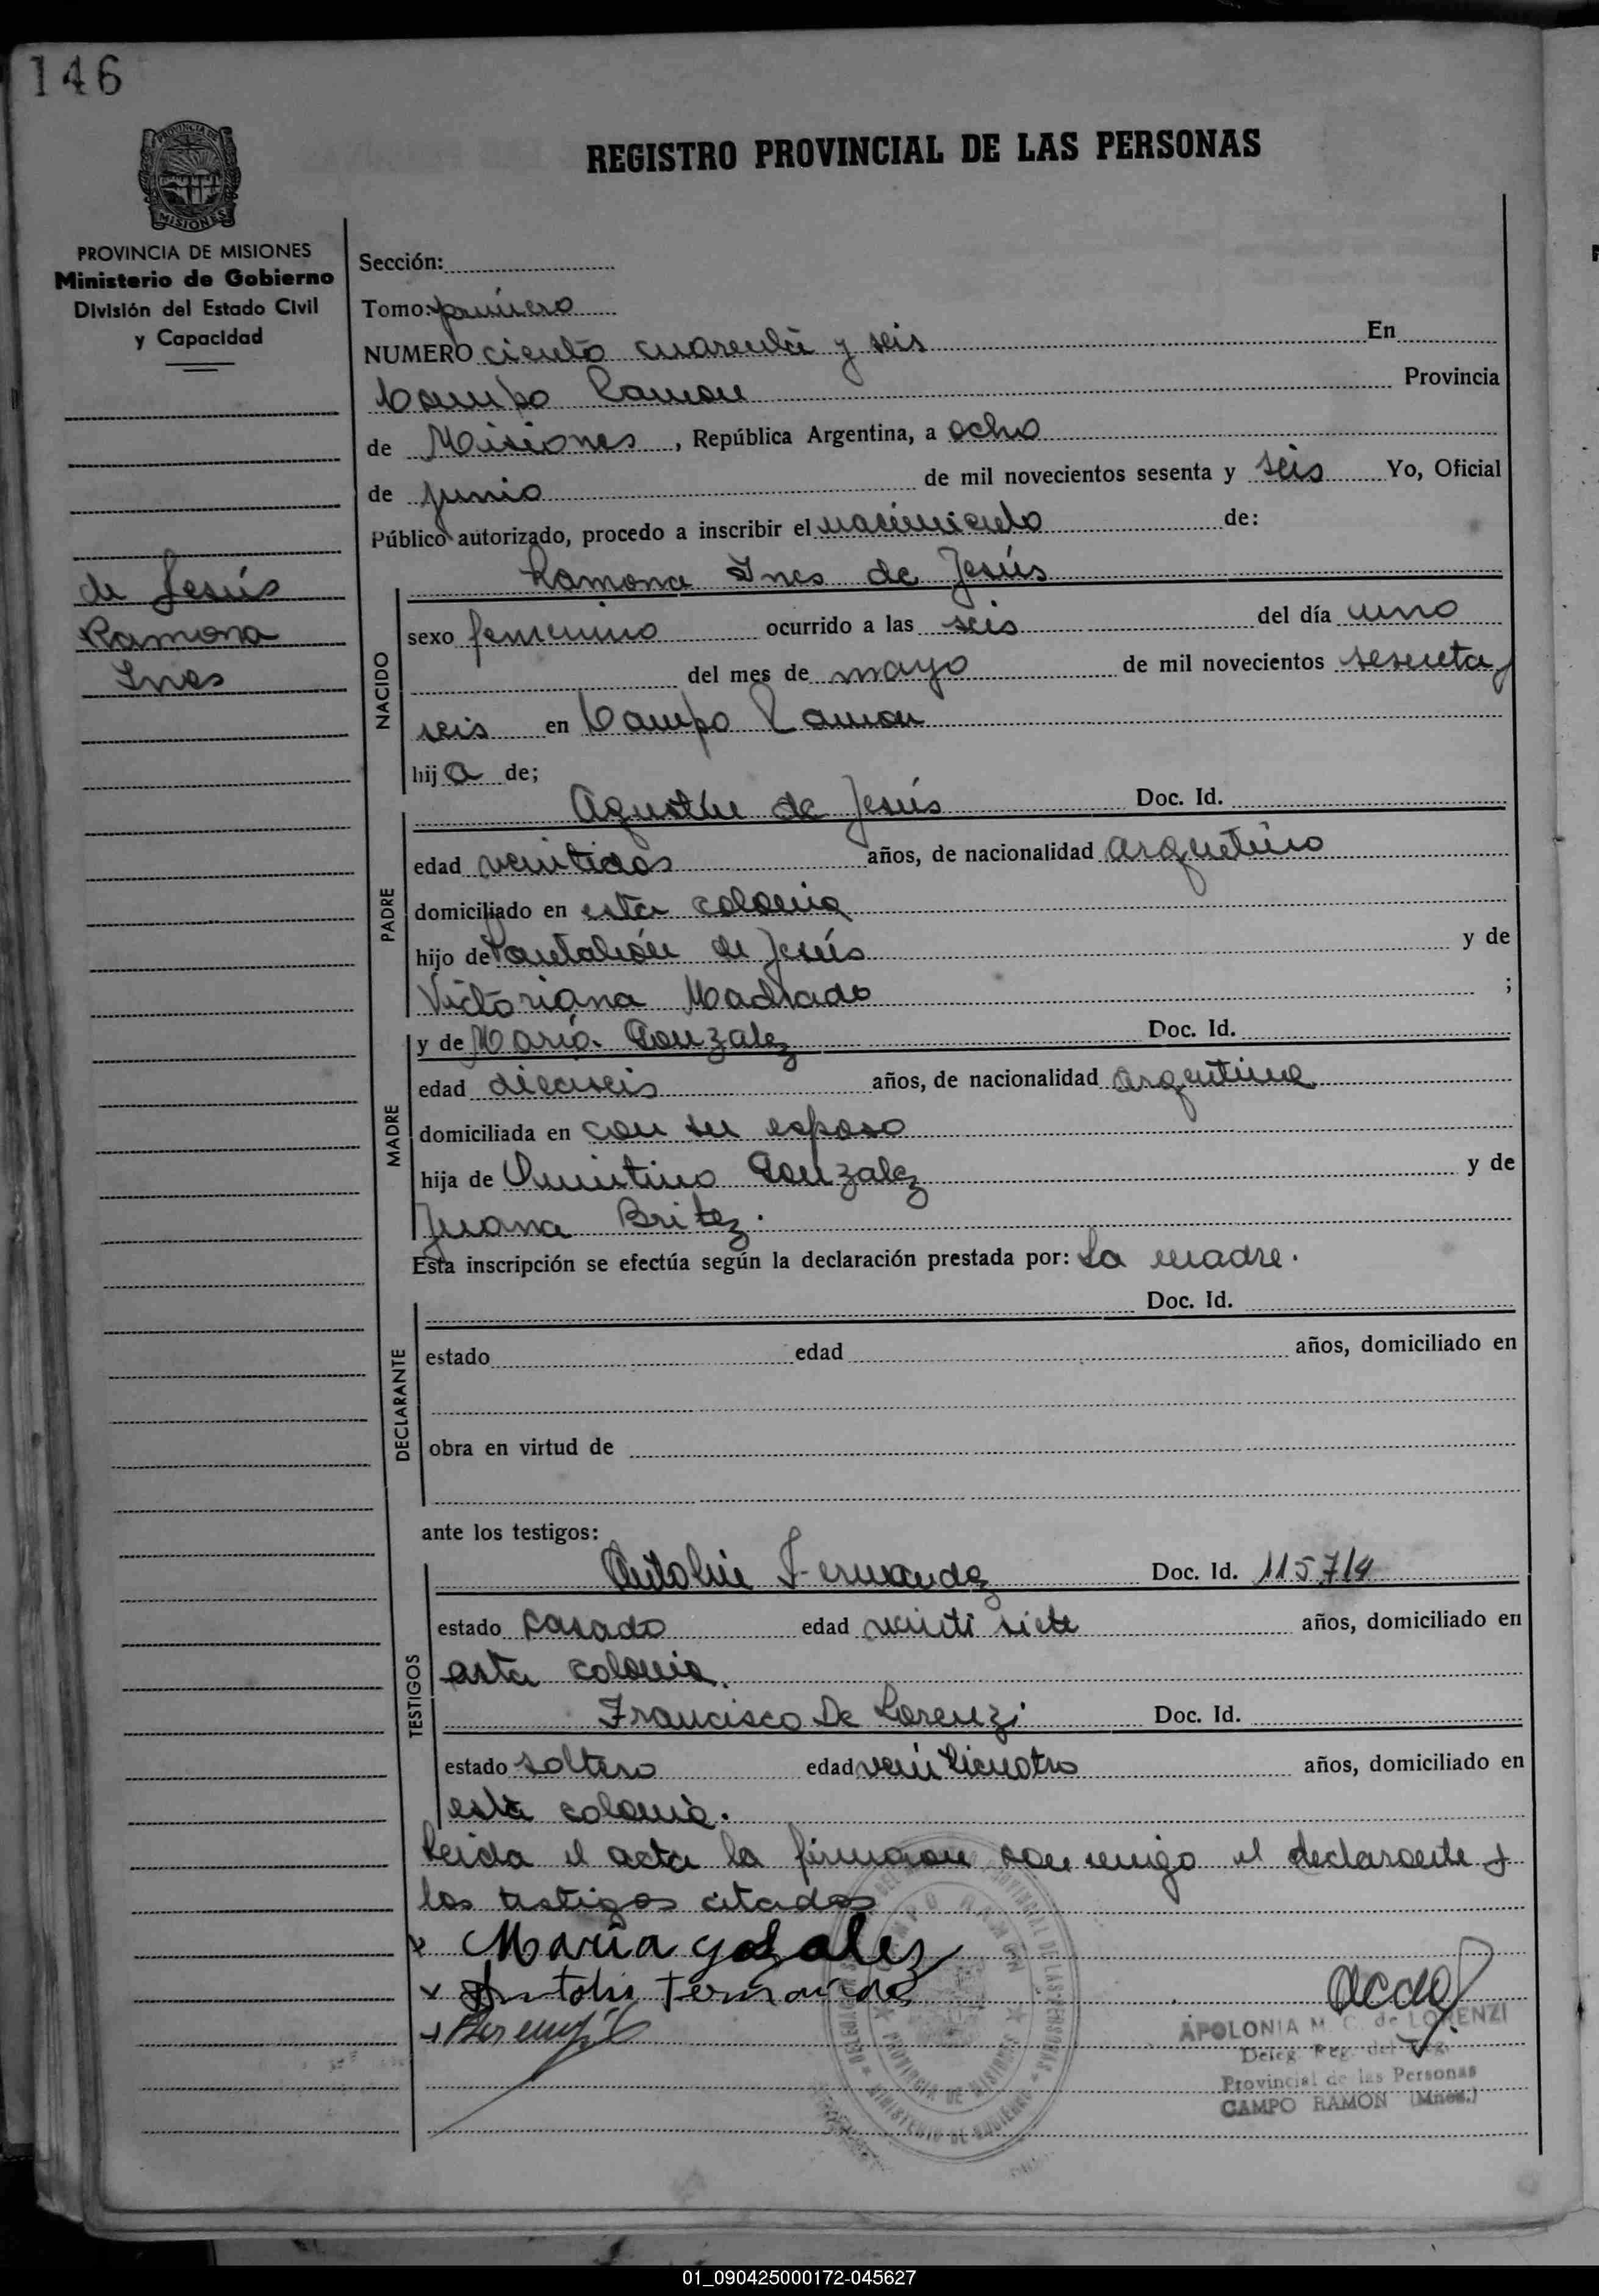 146
REGISTRO PROVINCIAL DE LAS PERSONAS
PROVINCIA DE
MISIONES
PROVINCIA DE MISIONES
Ministerio de Gobierno
División del Estado Civil
y Capacidad
de Jesús
Ramona
Ines
Sección:
Tomo: primero
NUMERO ciento cuarenta y seis En
Campo Ramon Provincia
de Misiones, República Argentina, a ocho
de junio de mil novecientos sesenta y seis Yo, Oficial
Público autorizado, procedo a inscribir el nacimiento de:
Ramona Ines de Jesús
NACIDO
sexo femenino ocurrido a las seis del día uno
del mes de mayo de mil novecientos sesenta y
seis en Campo Ramon
hija de;
Agustin de Jesús Doc. Id.
PADRE
edad veintidos años, de nacionalidad argentino
domiciliado en esta colonia
hijo de Pantaleón de Jesús y de
Victoriana Machado ;
y de María Gonzalez Doc. Id.
MADRE
edad dieciseis años, de nacionalidad argentina
domiciliada en con su esposo
hija de Quintino Gonzalez y de
Juana Britez.
Esta inscripción se efectúa según la declaración prestada por: La madre.
Doc. Id.
DECLARANTE
estado edad años, domiciliado en
obra en virtud de
ante los testigos:
Antolin Fernandez Doc. Id. 115.714
TESTIGOS
estado casado edad veinti siete años, domiciliado en
esta colonia.
Francisco De Lorenzi Doc. Id.
estado soltero edad veinticuatro años, domiciliado en
esta colonia.
Leida el acta la firmaron conmigo el declarante y
los testigos citados
x Maria
x Antolin Fernandez
APOLONIA M. C. de LORENZI
Deleg. Reg. del
Provincial de las Personas
CAMPO RAMON (Mnes.)
PROVINCIAL DE LAS PERSONAS
CAMPO RAMON
PROVINCIA DE MISIONES
MINISTERIO DE GOBIERNO
01_090425000172-045627